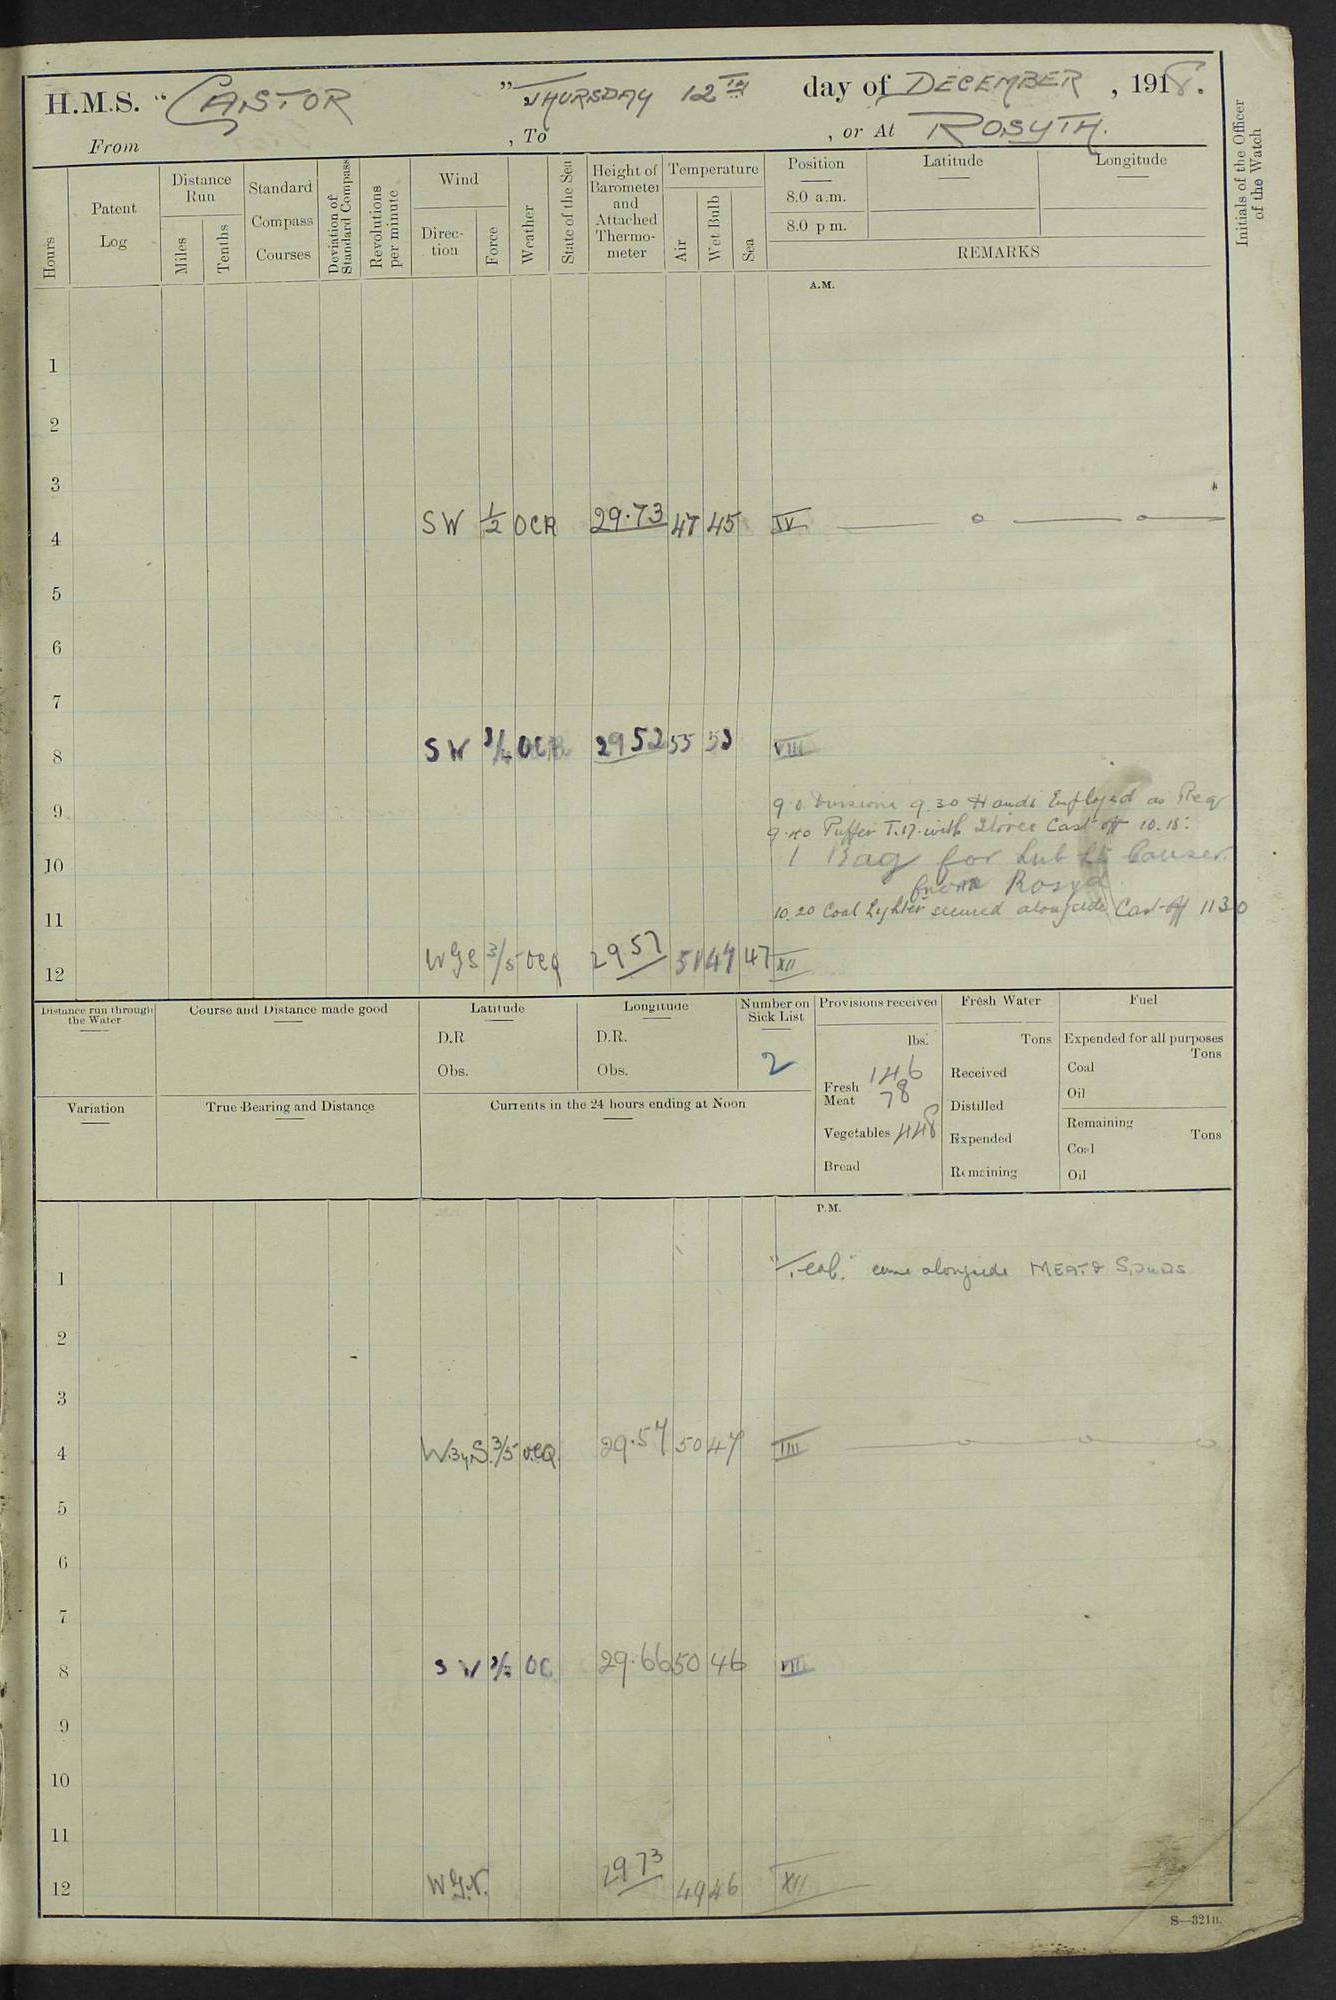 H.M.S. "CASTOR" THURSDAY 12TH day of DECEMBER, 1918.
From , To , or At ROSYTH.
Initials of the Officer of the Watch
Hours
Patent Log
Distance Run
Miles
Tenths
Standard Compass Courses
Deviation of Standard Compass
Revolutions per minute
Wind
Direction
Force
Weather
State of the Sea
Height of Barometer and Attached Thermometer
Temperature
Air
Wet Bulb
Sea
Position
8.0 a.m.
8.0 p m.
Latitude
Longitude
REMARKS
A.M.
1
2
3
4 SW 1/2 OCR 29.73 47 45 IV
5
6
7
8 SW 3/4 OCR 29 52 55 53 VIII
9 9.0 Divisions 9.30 Hands Employed as Req
9.40 Puffer T.17. with Stores Cast off 10.15.
10 1 Bag for Sub Lt
from Rosyd
11 10.20 Coal Lyhter secured alongside Cast off 1130
12 WyS 3/5 OCQ 29 57 51 47 47 XII
Distance run through the Water
Course and Distance made good
Latitude
D.R
Obs.
Longitude
D.R.
Obs.
Number on Sick List
2
Provisions received
lbs.
Fresh Meat 146
78
Vegetables 448
Bread
Fresh Water
Tons
Received
Distilled
Expended
Remaining
Fuel
Expended for all purposes
Tons
Coal
Oil
Remaining
Tons
Coal
Oil
Variation
True Bearing and Distance
Currents in the 24 hours ending at Noon
P.M.
1 came alongside MEAT & SPUDS
2
3
4 W.By.S. 3/5 OCQ 29.57 50 47 IIII
5
6
7
8 SW OC 29.66 50 46 VIII
9
10
11
12 WyN. 29 73 49 46 XII
S—321B.